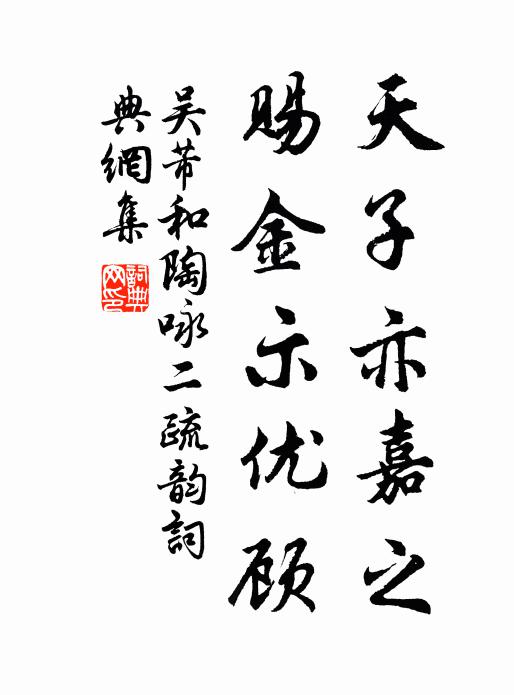 天子亦嘉之
赐金示优顾
吴芾和陶咏二疏韵詞
典網集
詞典網印